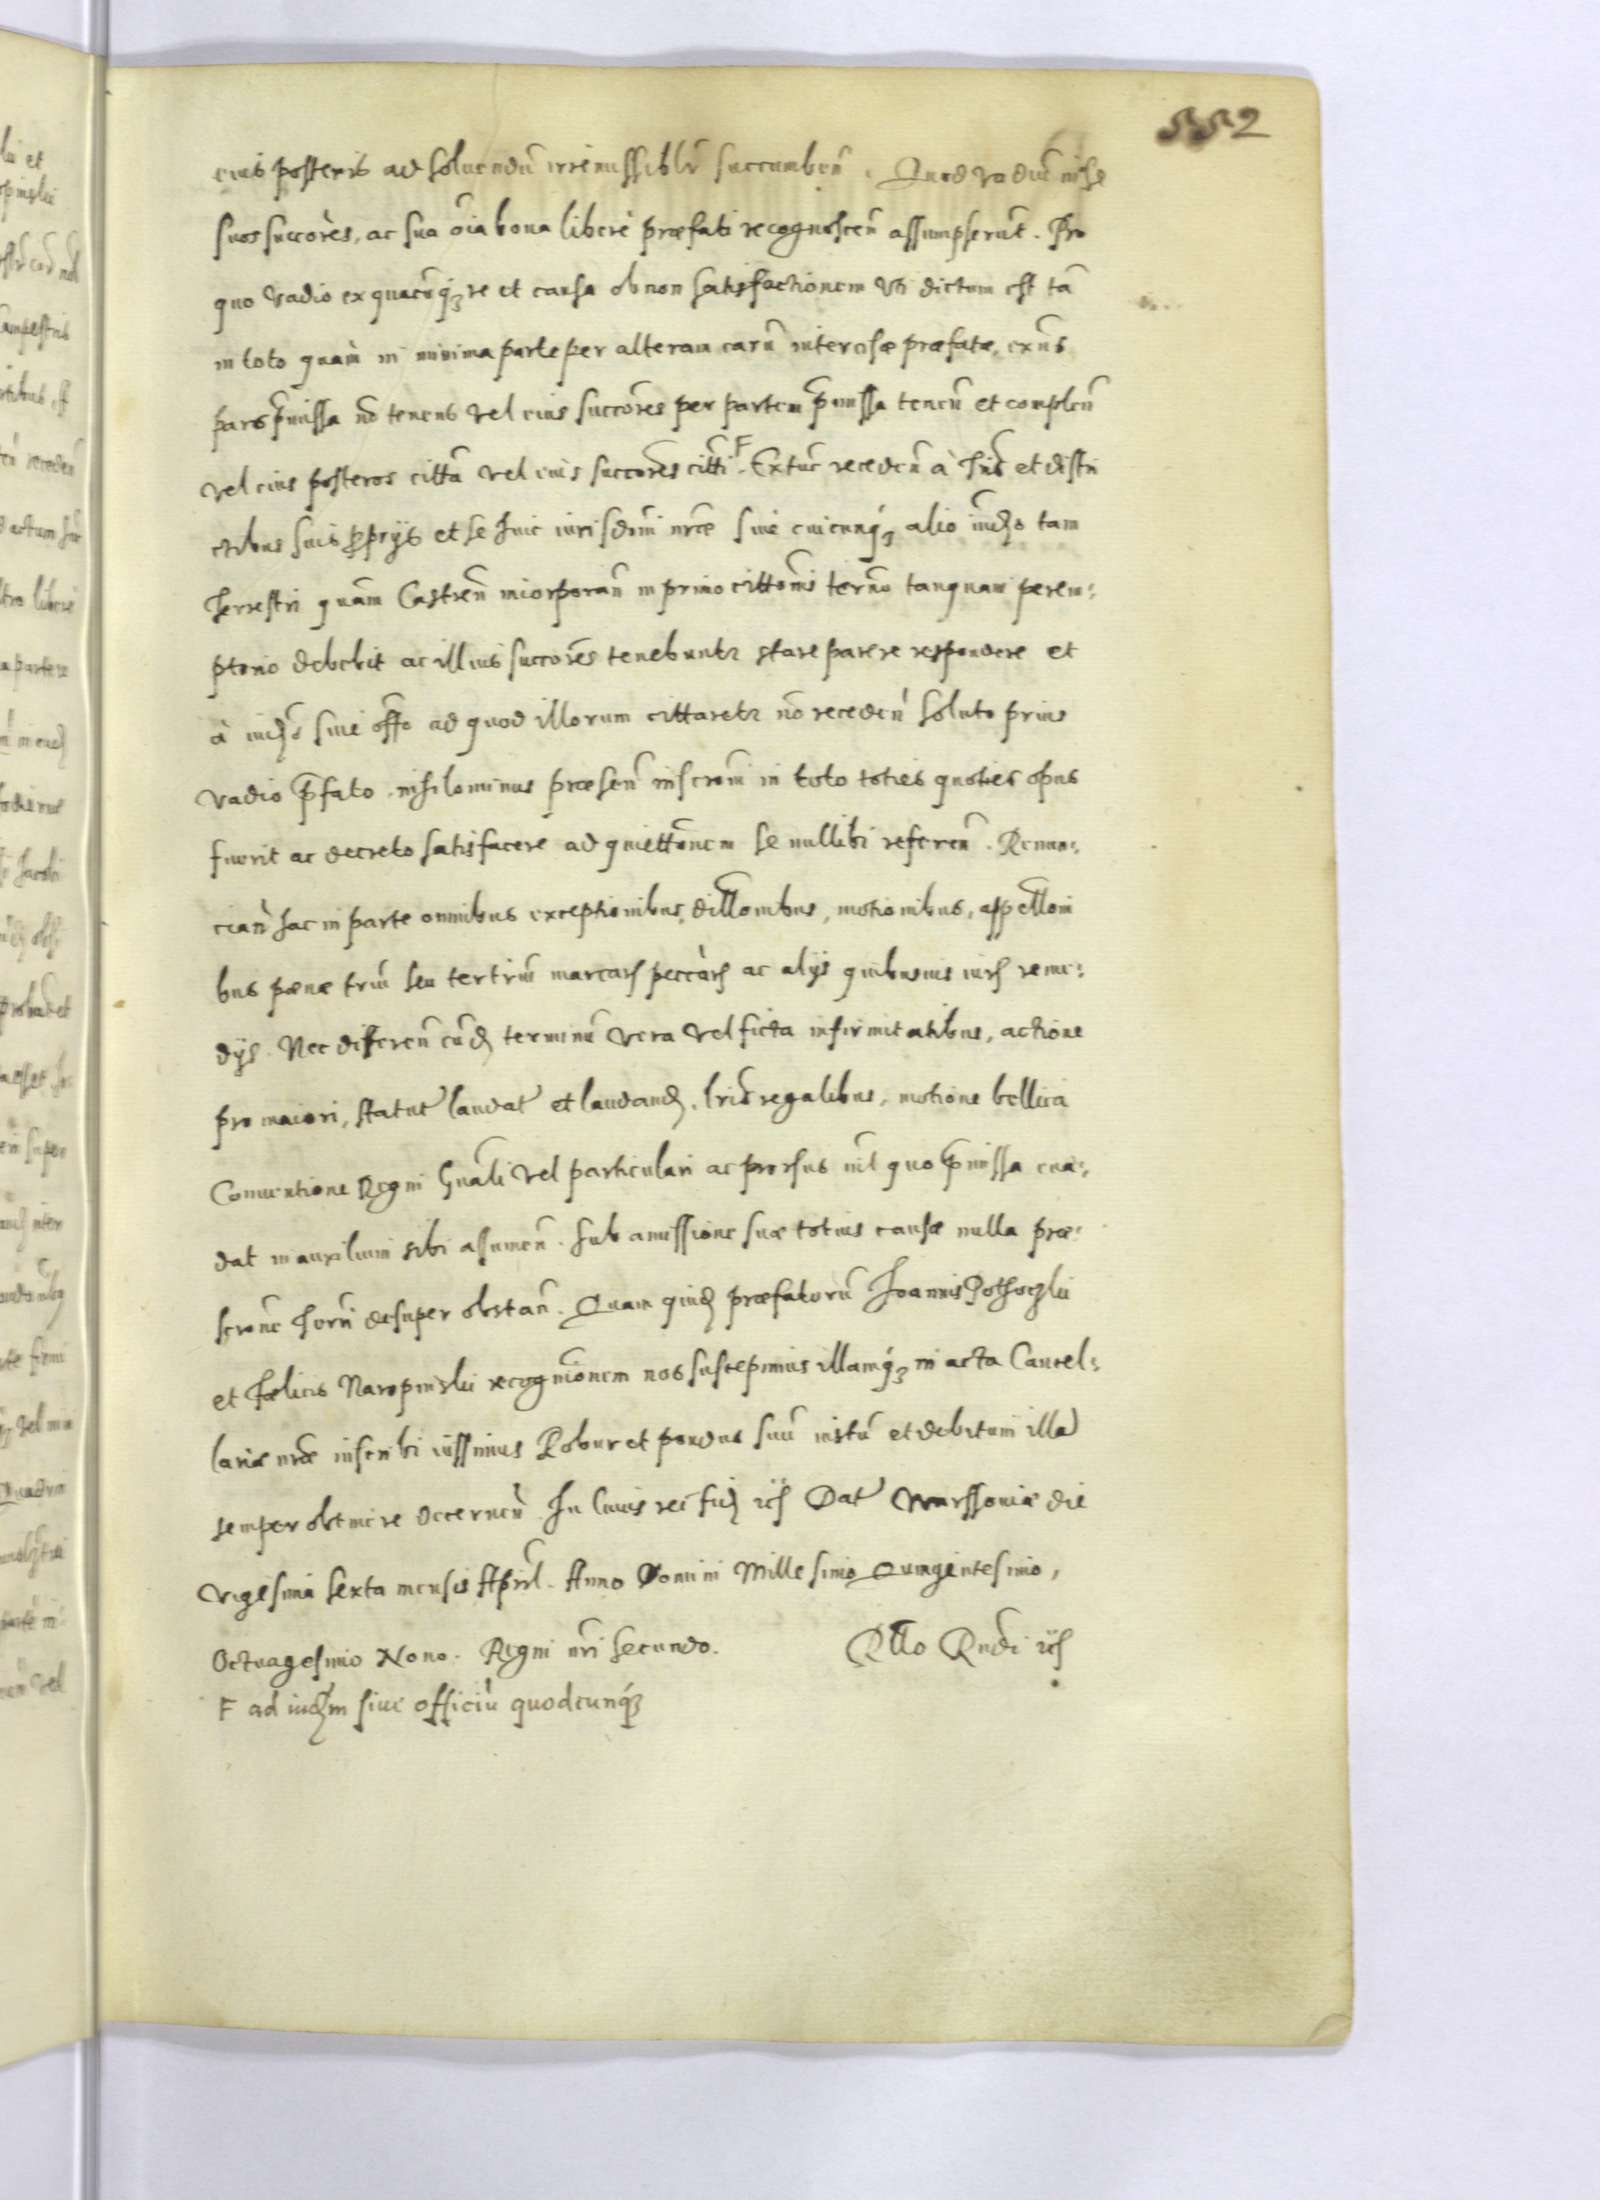 552
eius posteris ad soluendũ irremissiblr succumbeñ. Quod vadiũ in se
suos succores, ac sua oĩa bona libere præfati recognosceñ assumpserũt. Pro
quo vadio ex quacũq₃ re et causa ob non satisfactionem vti dictum est tã
in toto quàm in minima parte per alteram earũ intercisæ præfatæ, exñs
pars p̃missa nõ tenens vel eius succores per partem p̃missa teneñ et compleñ
vel eius posteros citta vel eius succores citti F Extunc recedeñ à et distri
ctibus suis proprijs et se huic iurisdoñi nrae siue cuicunq₃ alio iudo tam
Terrestri quam Castreñ incorporañ in primo cittonis termo tanquam perem=
ptorio debebit ac illius succores tenebuntr stare parere respondere et
à iudo siue offo ad quod illorum cittaretr nõ recedeñ soluto prius
vadio p̃fato nihilominus præseñ inscroni in toto toties quoties opus
fuerit ac decreto satisfacere ad quiettonem se nullibi refereñ. Renun=
ciañ hac in parte omnibus exceptionibus, dillonibus, motionibus, appelloni
bus pænæ triũ seu tertriũ marcar peccar ac alijs quibusuis iur reme=
dijs. Nec differeñ eund terminũ vera vel ficta infirmitatibus, actione
pro maiori, statut laudat et laudand, lris regalibus, motione bellica
Conuentione Regni Gnali vel particulari ac prorsus nil quo p̃missa eua=
dat in auxilium sibi assumeñ. Sub amissione suæ totius causæ nulla præ=
scrone Terri desuper obstañ. Quam quid præfatorũ Joannis
et Fælicis recognionem nos suscepimus illamq₃ in acta Cancel=
lariæ nræ inscribi iussimus Robur et pondus suũ iustũ et debitum illa
semper obtinere decerneñ. In cuius rei fid Dat Warssouiæ die
vigesima sexta mensis Apríl. Anno Domini Millesimo Quingentesimo,
Octuagesimo Nono. Regni nri secundo. Rllo Rndi
F ad iudm siue officiũ quodcunq₃